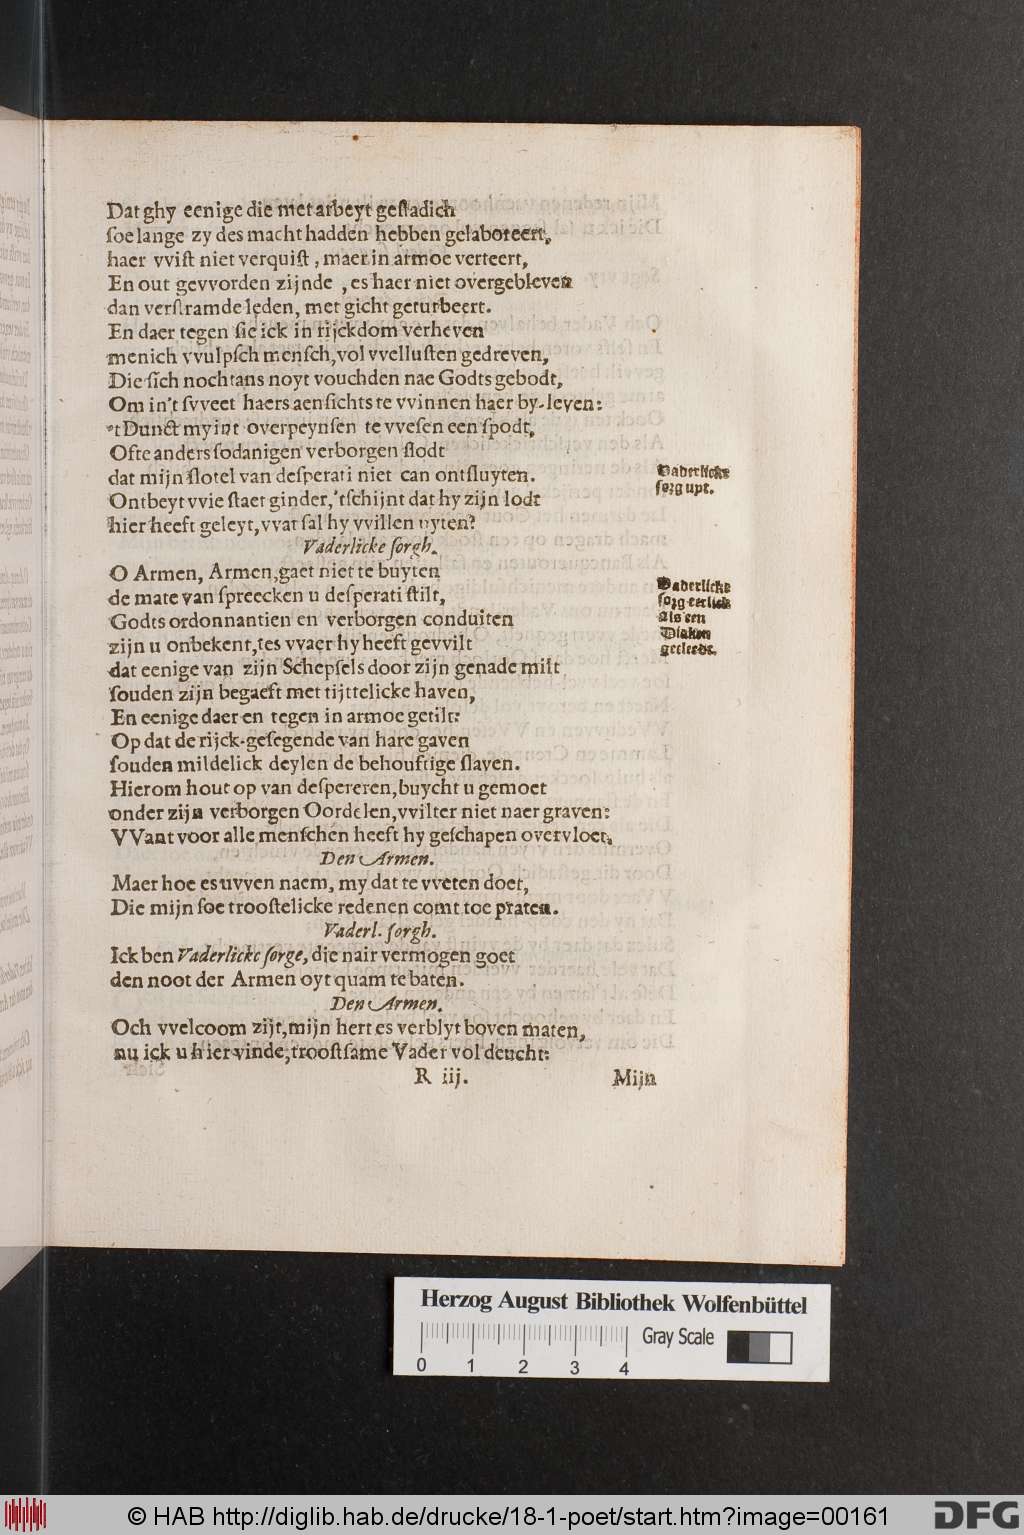 Dat ghy eenige die met arbeyt geſtadich
ſoe lange zy des macht hadden hebben gelaboreert,
haer vviſt niet verquiſt, maer in armoe verteert,
En out gevvorden zijnde, es haer niet overgebleven
dan verſtramde leden, met gicht geturbeert.
En daer tegen ſie ick in rijckdom verheven
menich vvulpſch menſch, vol vvelluſten gedreven,
Die ſich nochtans noyt vouchden nae Godts gebodt,
Om in't ſvveet haers aenſichts te vvinnen haer by-leven:
't Dunct my int overpeynſen te vveſen een ſpodt,
Ofte anders ſodanigen verborgen ſlodt
dat mijn ſlotel van deſperati niet can ontſluyten.
Ontbeyt vvie ſtaet ginder, 'tſchijnt dat hy zijn lodt
hier heeft geleyt, vvat ſal hy vvillen uyten?
Vaderlicke ſorg uyt.
Vaderlicke ſorgh.
O Armen, Armen, gaet niet te buyten
de mate van ſpreecken u deſperati ſtilt,
Godts ordonnantien en verborgen conduiten
zijn u onbekent, tes vvaer hy heeft gevvilt
dat eenige van zijn Schepſels door zijn genade milt
ſouden zijn begaeft met tijttelicke haven,
En eenige daer en tegen in armoe getilt:
Op dat de rijck-geſegende van hare gaven
ſouden mildelick deylen de behouftige ſlaven.
Hierom hout op van deſpereren, buycht u gemoet
onder zijn verborgen Oordelen, vvilter niet naer graven:
VVant voor alle menſchen heeft hy geſchapen overvloet.
Vaderlicke
ſorg eerlick
als een
Diaken
gecleedt.
Den Armen.
Maer hoe es uvven naem, my dat te vveten doet,
Die mijn ſoe trooſtelicke redenen comt toe praten.
Vaderl. ſorgh.
Ick ben Vaderlicke ſorge, die nair vermogen goet
den noot der Armen oyt quam te baten.
Den Armen.
Och vvelcoom zijt, mijn hert es verblyt boven maten,
nu ick u hier vinde, trooſtſame Vader vol deucht:
R iij. Mijn
Herzog August Bibliothek Wolfenbüttel
Gray Scale
0 1 2 3 4
© HAB http://diglib.hab.de/drucke/18-1-poet/start.htm?image=00161
DFG